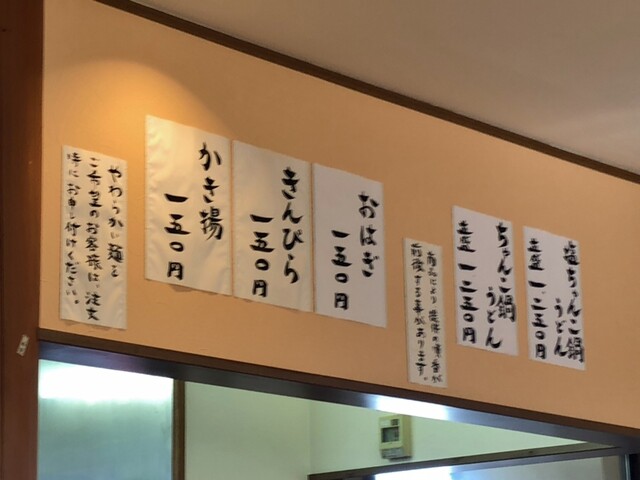 塩ちゃんこ鍋
うどん
並盛 一、二五〇円
ちゃんこ鍋
うどん
並盛 一、二五〇円
商品により提供の順番が
前後する事があります。
おはぎ
一五〇円
きんぴら
一五〇円
かき揚
一五〇円
やわらかい麺を
ご希望のお客様は、注文
時にお申し付けください。